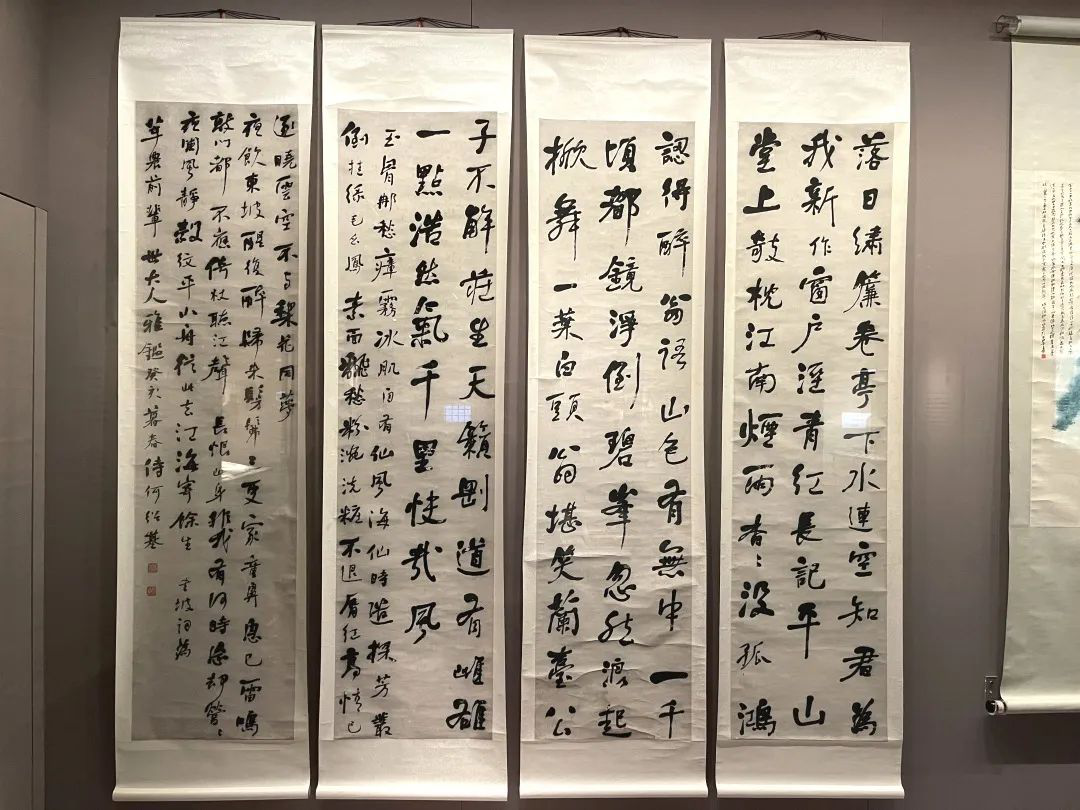 落日繡簾卷亭下水連空知君為
我新作窗戶溼青紅長記平山
堂上攲枕江南煙雨杳〻沒孤鴻
認得醉翁語山色有無中一千
頃都鏡淨倒碧峯忽然浪起
掀舞一葉白頭翁堪笑蘭臺公
子不解莊生天籟剛道有雌雄
一點浩然氣千里快哉風
玉骨那愁瘴霧冰肌自有仙風海仙時遣探芳叢
倒挂綠毛幺鳳素面飜愁粉涴洗粧不退脣紅高情已
逐曉雲空不与棃花同夢
夜飲東坡醒復醉歸來髣髴三更家童鼻息已雷鳴
敲門都不應倚杖聽江聲長恨此身非我有何時忘却營〻
夜闌風靜縠紋平小舟從此去江海寄餘生東坡詞為
前輩世大人雅鑑癸亥暮春侍何紹基